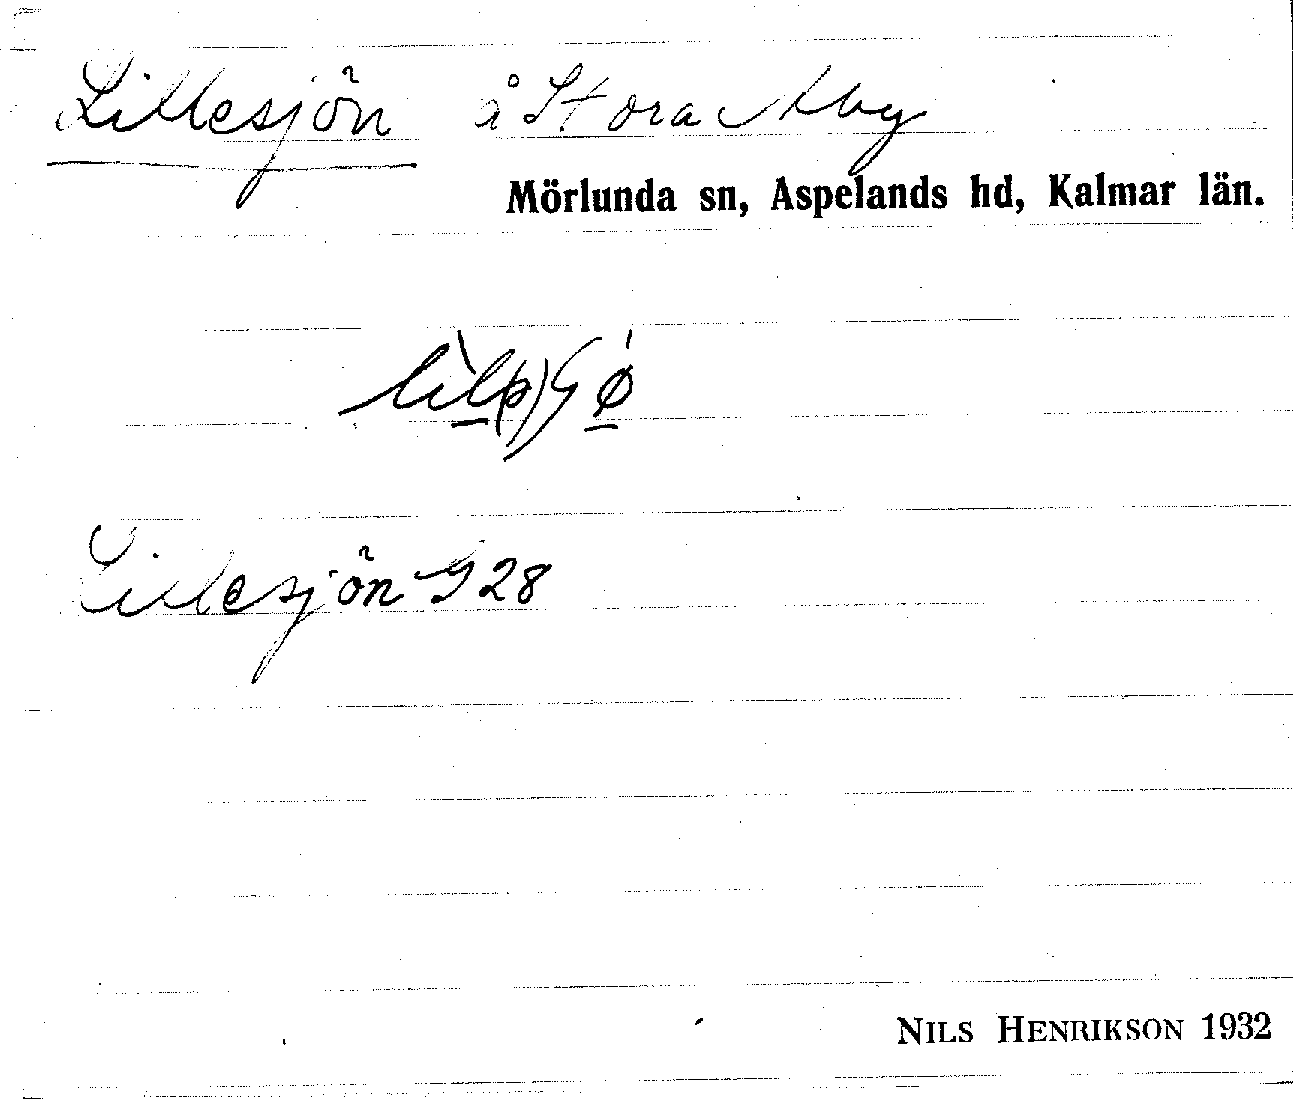 Lillesjön å Stora Aby
Mörlunda sn, Aspelands hd, Kalmar län.
Lillesjön G 28
NILS HENRIKSON 1932